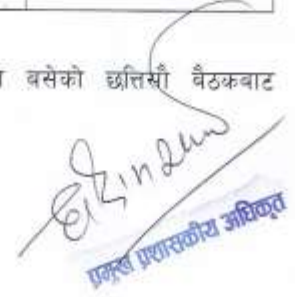 बसेको छत्तिसौं वैठकबाट
प्रमुख प्रशासकीय अधिकृत